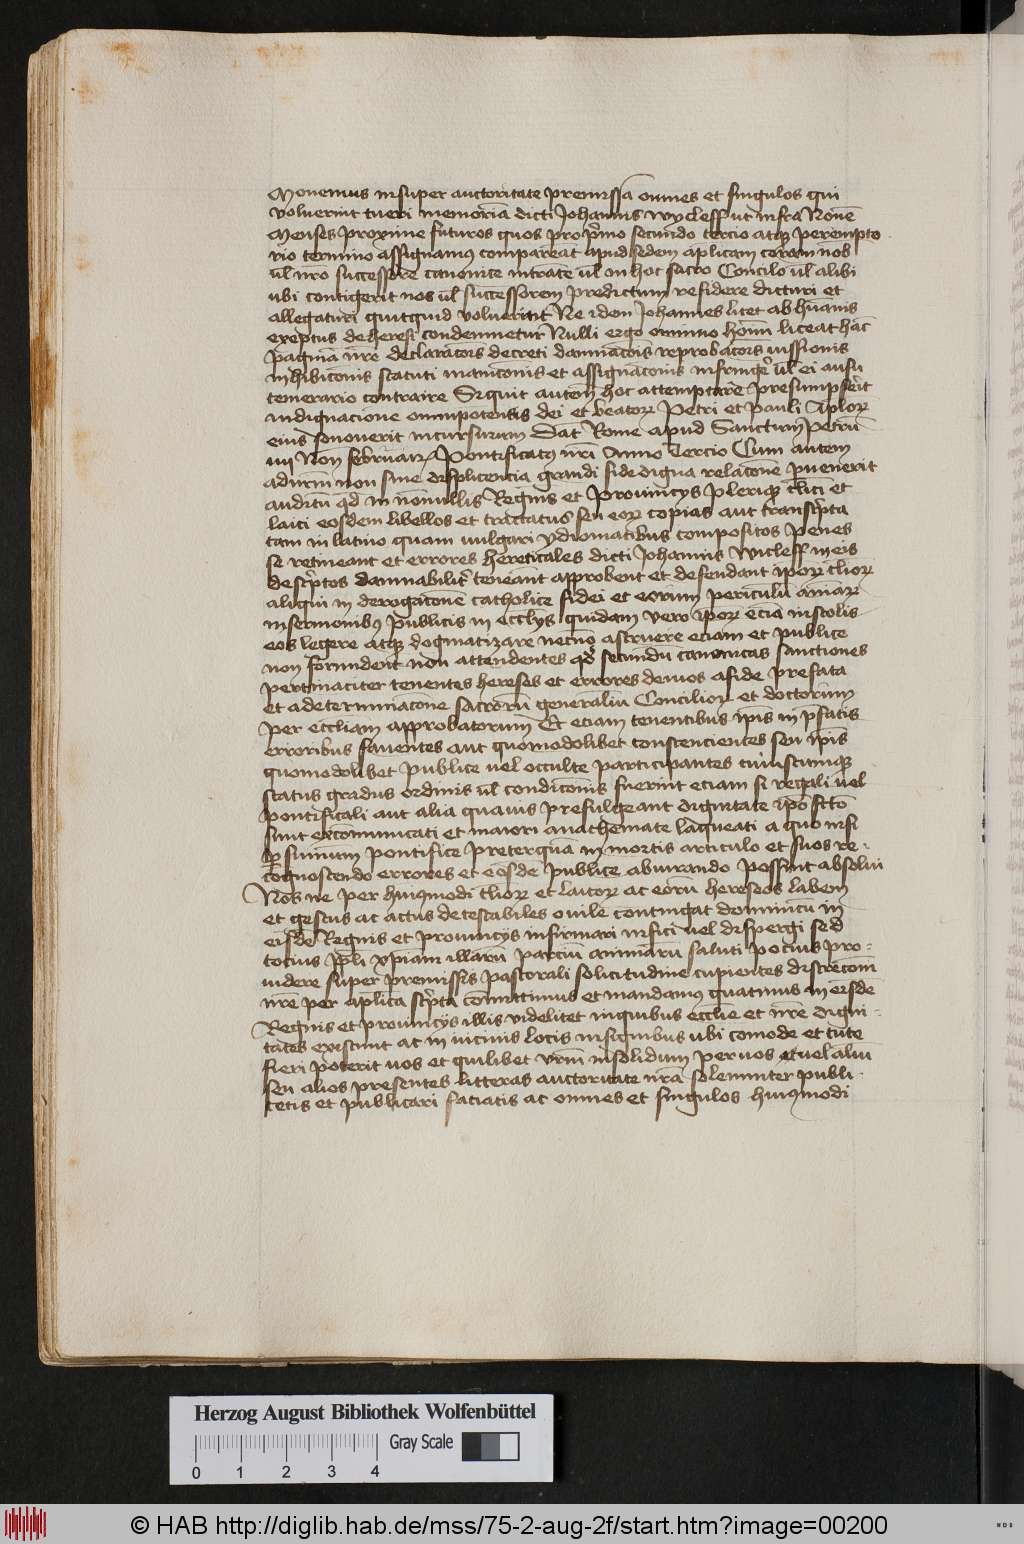 Monemus insuper auctoritate premissa omnes et singulos qui
voluerint tueri memoriā dicti Johannis wycleff ut infra Nonē
Menses proxime futuros quos pro p̄mo secundo tercio atqꝫ perempto
rio termino assignamus compareāt apud sedem aplicam coram nob̄
ul̄ nr̄o successore canonice intrāte ul̄ in hoc sacro Concilō ul̄ alibi
ubi contigerit nos ul̄ successorem predictum residere dicturi et
allegaturi quitquid voluerint Ne idem Johannes licet ab hūanis
exeptus de heresi condemnetur Nulli ergo omnino homī liceat hāc
paginā nr̄e declaracōis decreti dampnacōis reprobacōis iussionis
inhibicionis statuti manicōnis et assignacōnis infringe᷑ ul̄ ei ausu
temerario contraire Siquit autem hoc attemptare presumpserit
indignacione omnipotentis dei et beatorꝝ Petri et Pauli Aplorꝝ
eius se noverit incursurum Dat̄ Rome apud Sanctum Petrū
iiii Non februarꝝ Pontificatꝰ nr̄i Anno Tercio Cum autem
ad nrm̄ non sine displicencia grandi fide digna relacōne pvenerit
auditū qd̄ in nōnullis Regnis et Provincijs plerique cl̄ici et
laici eosdem libellos et tractatus seu eorꝝ copias aut transc̄pta
tam in latino quam vulgari ydiomatibus compositos penes
se retineant et errores hereticales dicti Johannis Wicleff in eis
desc̄ptos dampnabilit᷑ teneant approbent et defendant ipōrꝝ cl̄icorꝝ
aliqui in derogacōnē catholice fidei et eorum periculū aīarꝝ
in sermonibus publicis in eccl̄ijs quidam vero ipōrꝝ eciā in scolis
eos legere atqꝫ dogmatizare necnō astruere eciam et publice
non formident non attendentes qd̄ secundū canonicas sanctiones
pertinaciter tenentes hereses et errores devios a fide prefata
et a determinacōne sacrorū generaliū Conciliorꝝ et doctorum
per eccl̄iam approbatorum Et etiam tenentibus ip̄is in p̄fatis
erroribus faventes aut quomodolibet consencientes seu ip̄is
quomodolibet publice vel occulte participantes cuiuscumqꝫ
status gradus ordinis ul̄ condicōnis fuerint eciam si regali vel
pontificali aut alia quavis prefulgeant dignitate ip̄o fc̄tō
sunt excōmunicati et maiori anathemate laqueati a quo nisi
p̱ summum pontifice preterquā in mortis articulo et suos re-
cognoscendo errores et eosdē publice abiurando possunt absolvi
Nos ne per huiꝰmodi cl̄icorꝝ et laicorꝝ ac eorū hereseos labem
et gestus ac actus detestabiles ovile contingat dominicū in
eisdē Regnis et provincijs infirmari infici vel dispergi sed
tocius pp̄li xp̄iani illarū parciū animarū saluti pocius pro-
videre super premissis pastorali solicitudine cupientes discrecōni
vr̄e per aplica sc̄pta cōmittimus et mandamꝰ quatinus in eisdē
Regnis et provincijs illis videlicet in quibus eccl̄ie et vr̄e digni-
tates existunt ac in vicinis locis insignibus ubi comode et tute
fieri poterit vos et quilibet vrm̄ in solidum per vos et vel aliū
seu alios presentes litteras auctoritate nr̄a solenniter publi-
cetis et publicari faciatis ac omnes et singulos huiꝰmodi
Herzog August Bibliothek Wolfenbüttel
Gray Scale
0 1 2 3 4
© HAB http://diglib.hab.de/mss/75-2-aug-2f/start.htm?image=00200